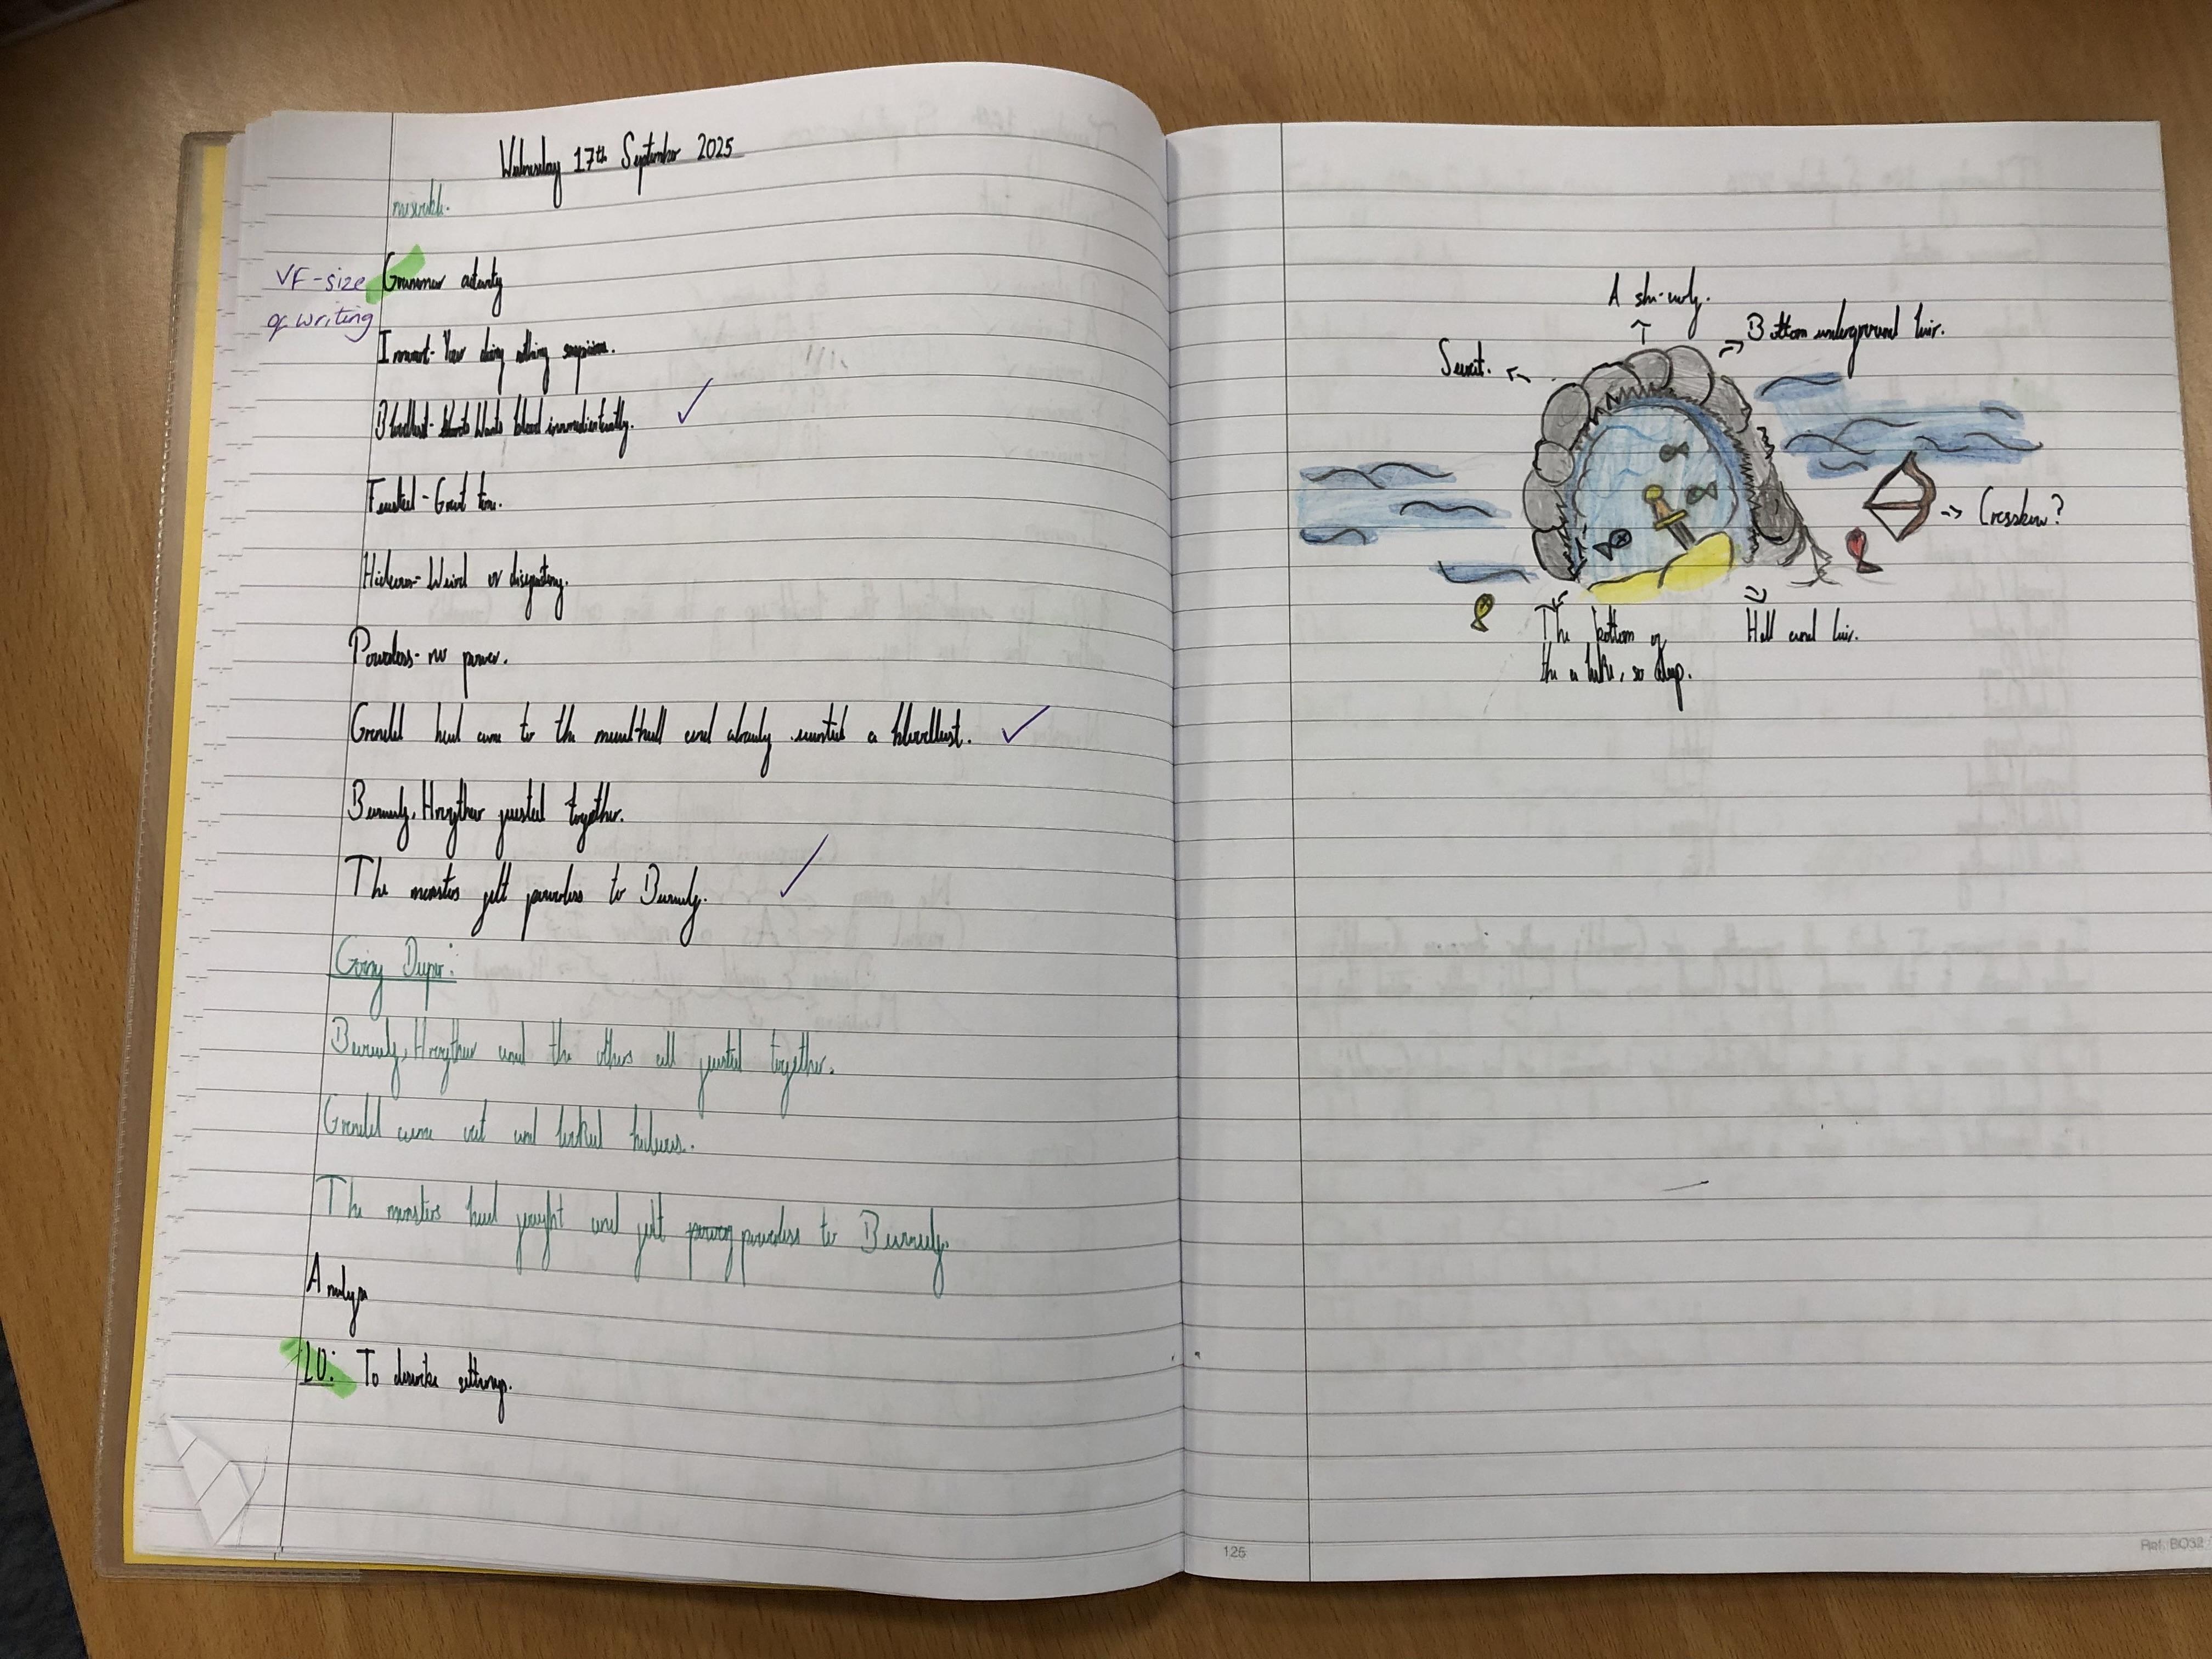 Wednesday 17th September 2025
miserable.
VF-size
of writing
Grammar activity
doing nothing
Bloodlust- Wants blood
Feasted- Great
Hideous- Weird or
Powerless- no power.
Grendel had came to the mead-hall and already wanted a bloodlust.
Beowulf, feasted together.
The monsters felt powerless to Beowulf.
Going Deeper:
Beowulf, and the others all feasted together.
Grendel came out and looked
The monsters had fought and felt powerless to Beowulf.
Analyse
LO: To describe settings.
A
Secret.
Bottom underground lair.
Crossbow?
The bottom of
the a lake, so deep.
Hall and lair.
125
Ref: BQ32